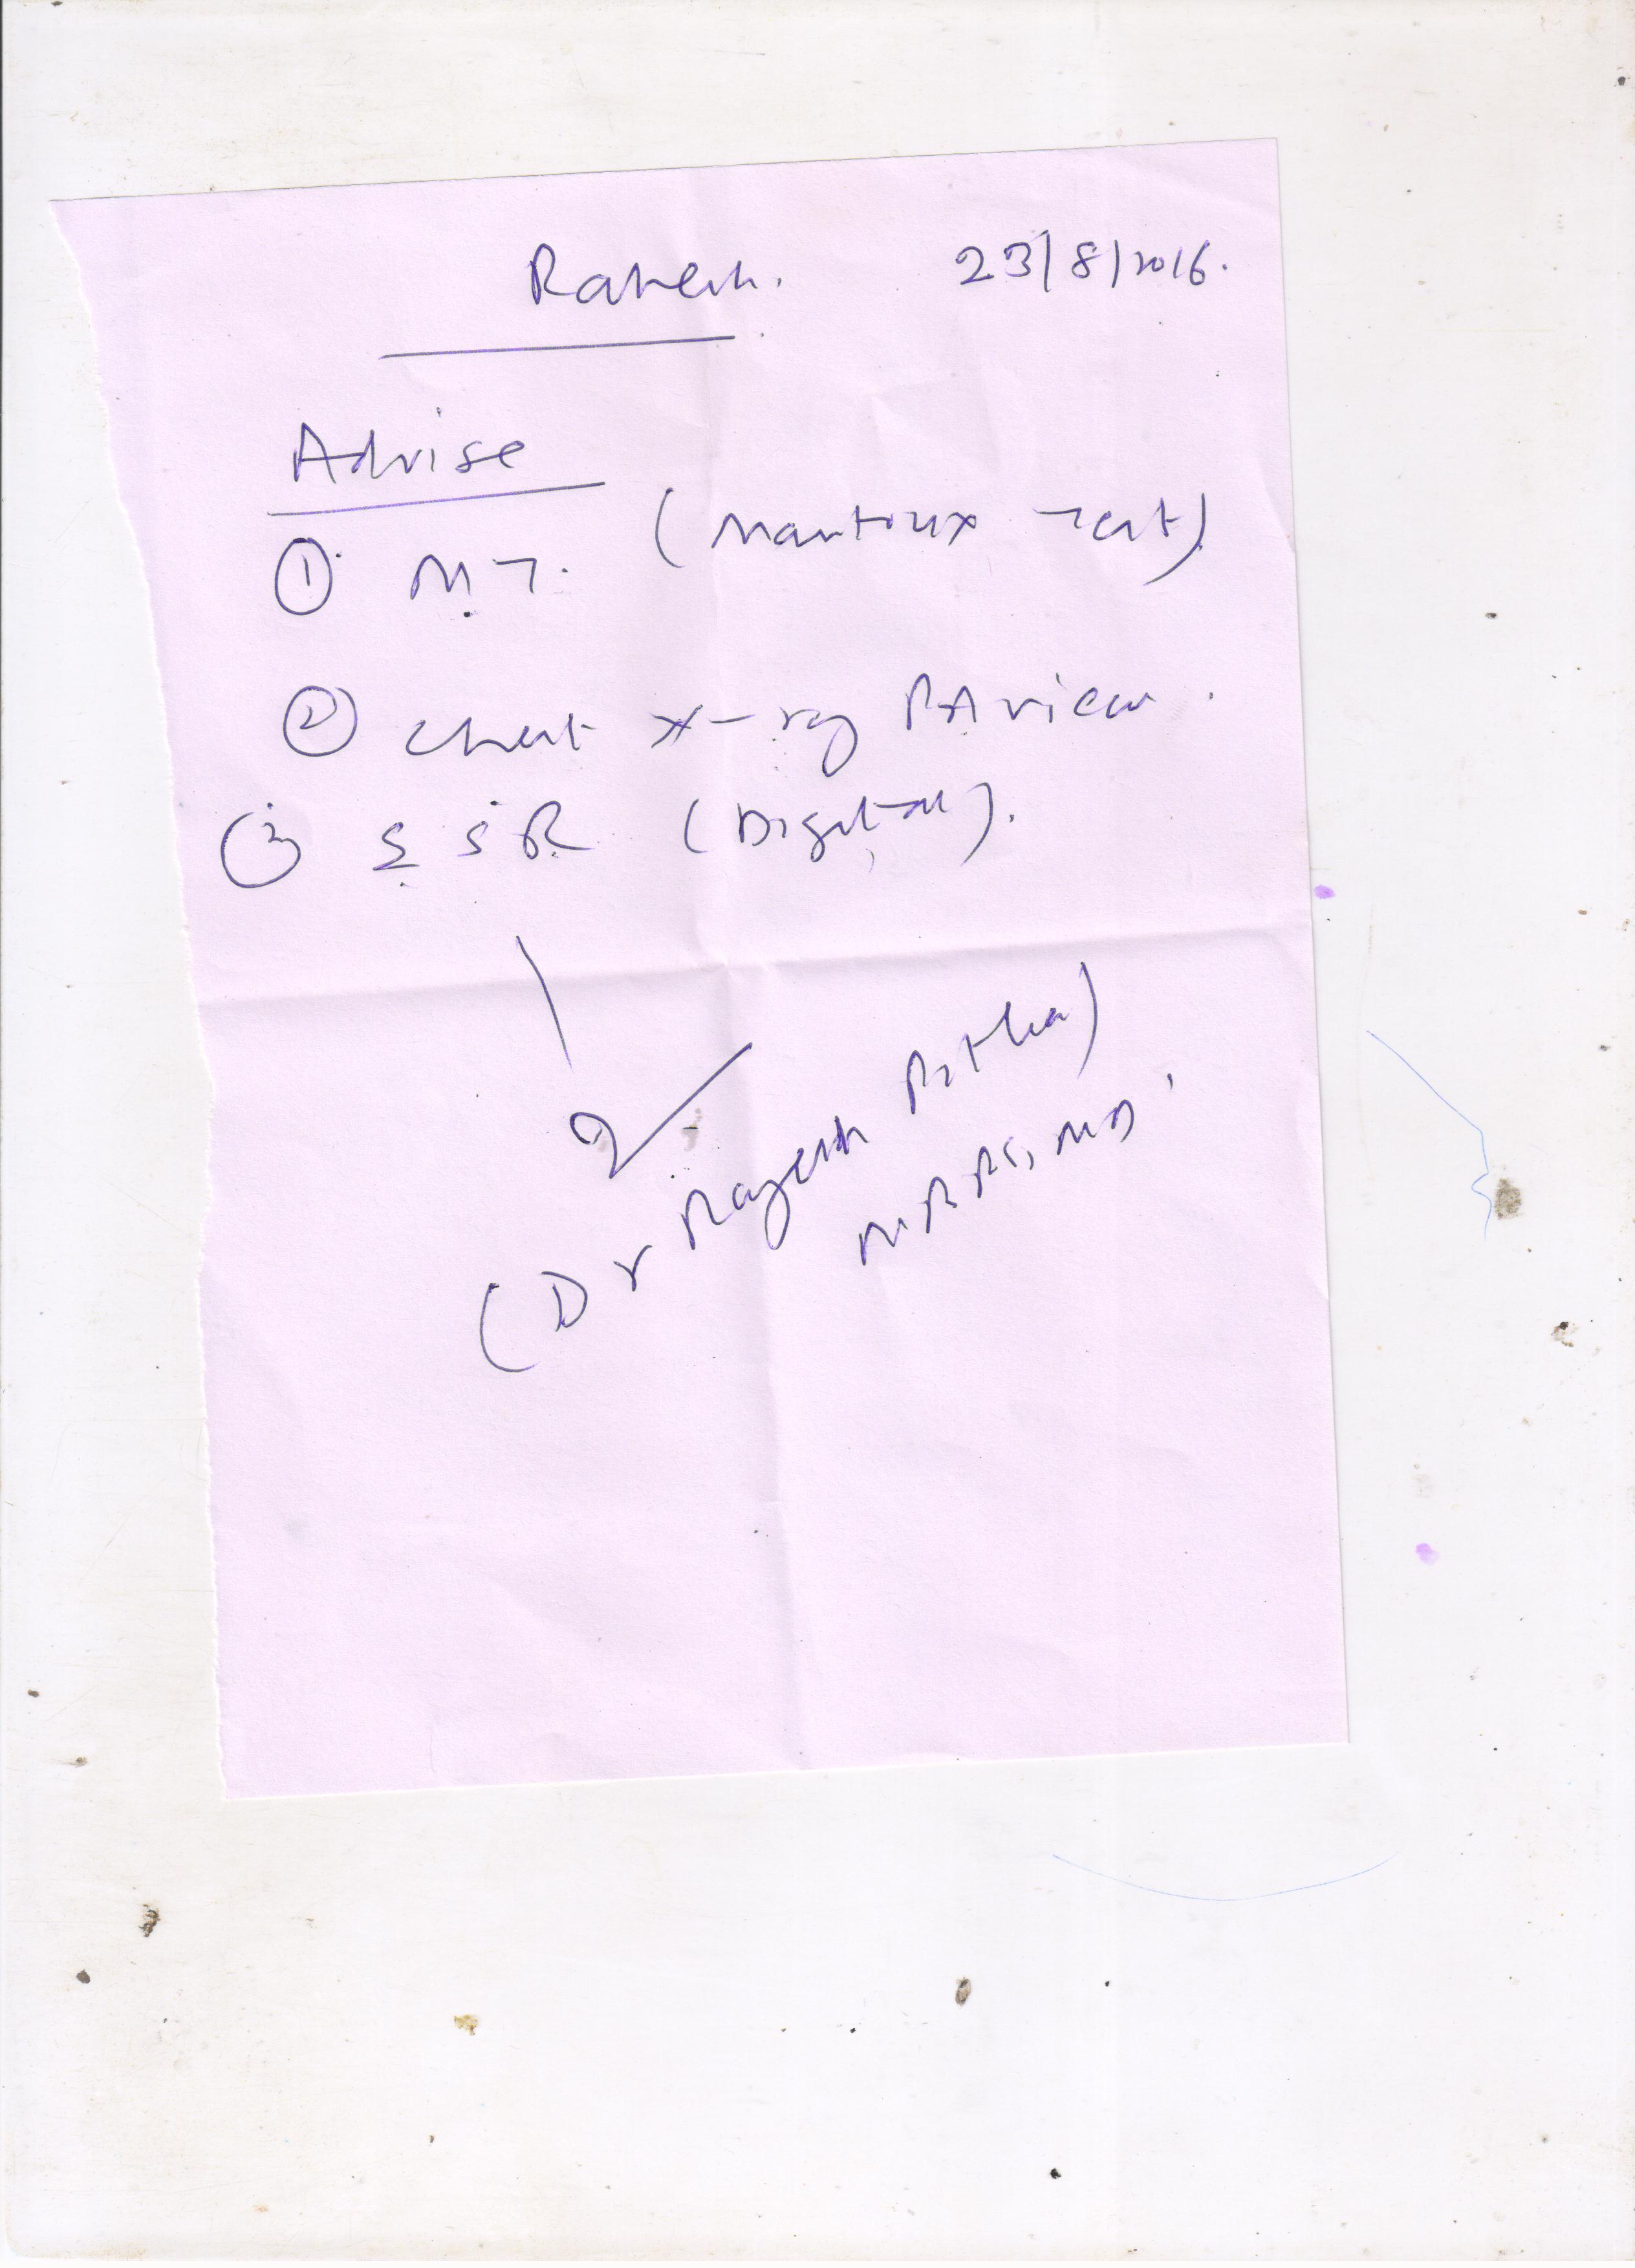 Rakesh. 23/8/2016.
Advise
① M.T. (Mantoux Test)
② Chest x-ray PA view.
③ ESR (Digital).
(Dr Rajesh
MBBS, MD.